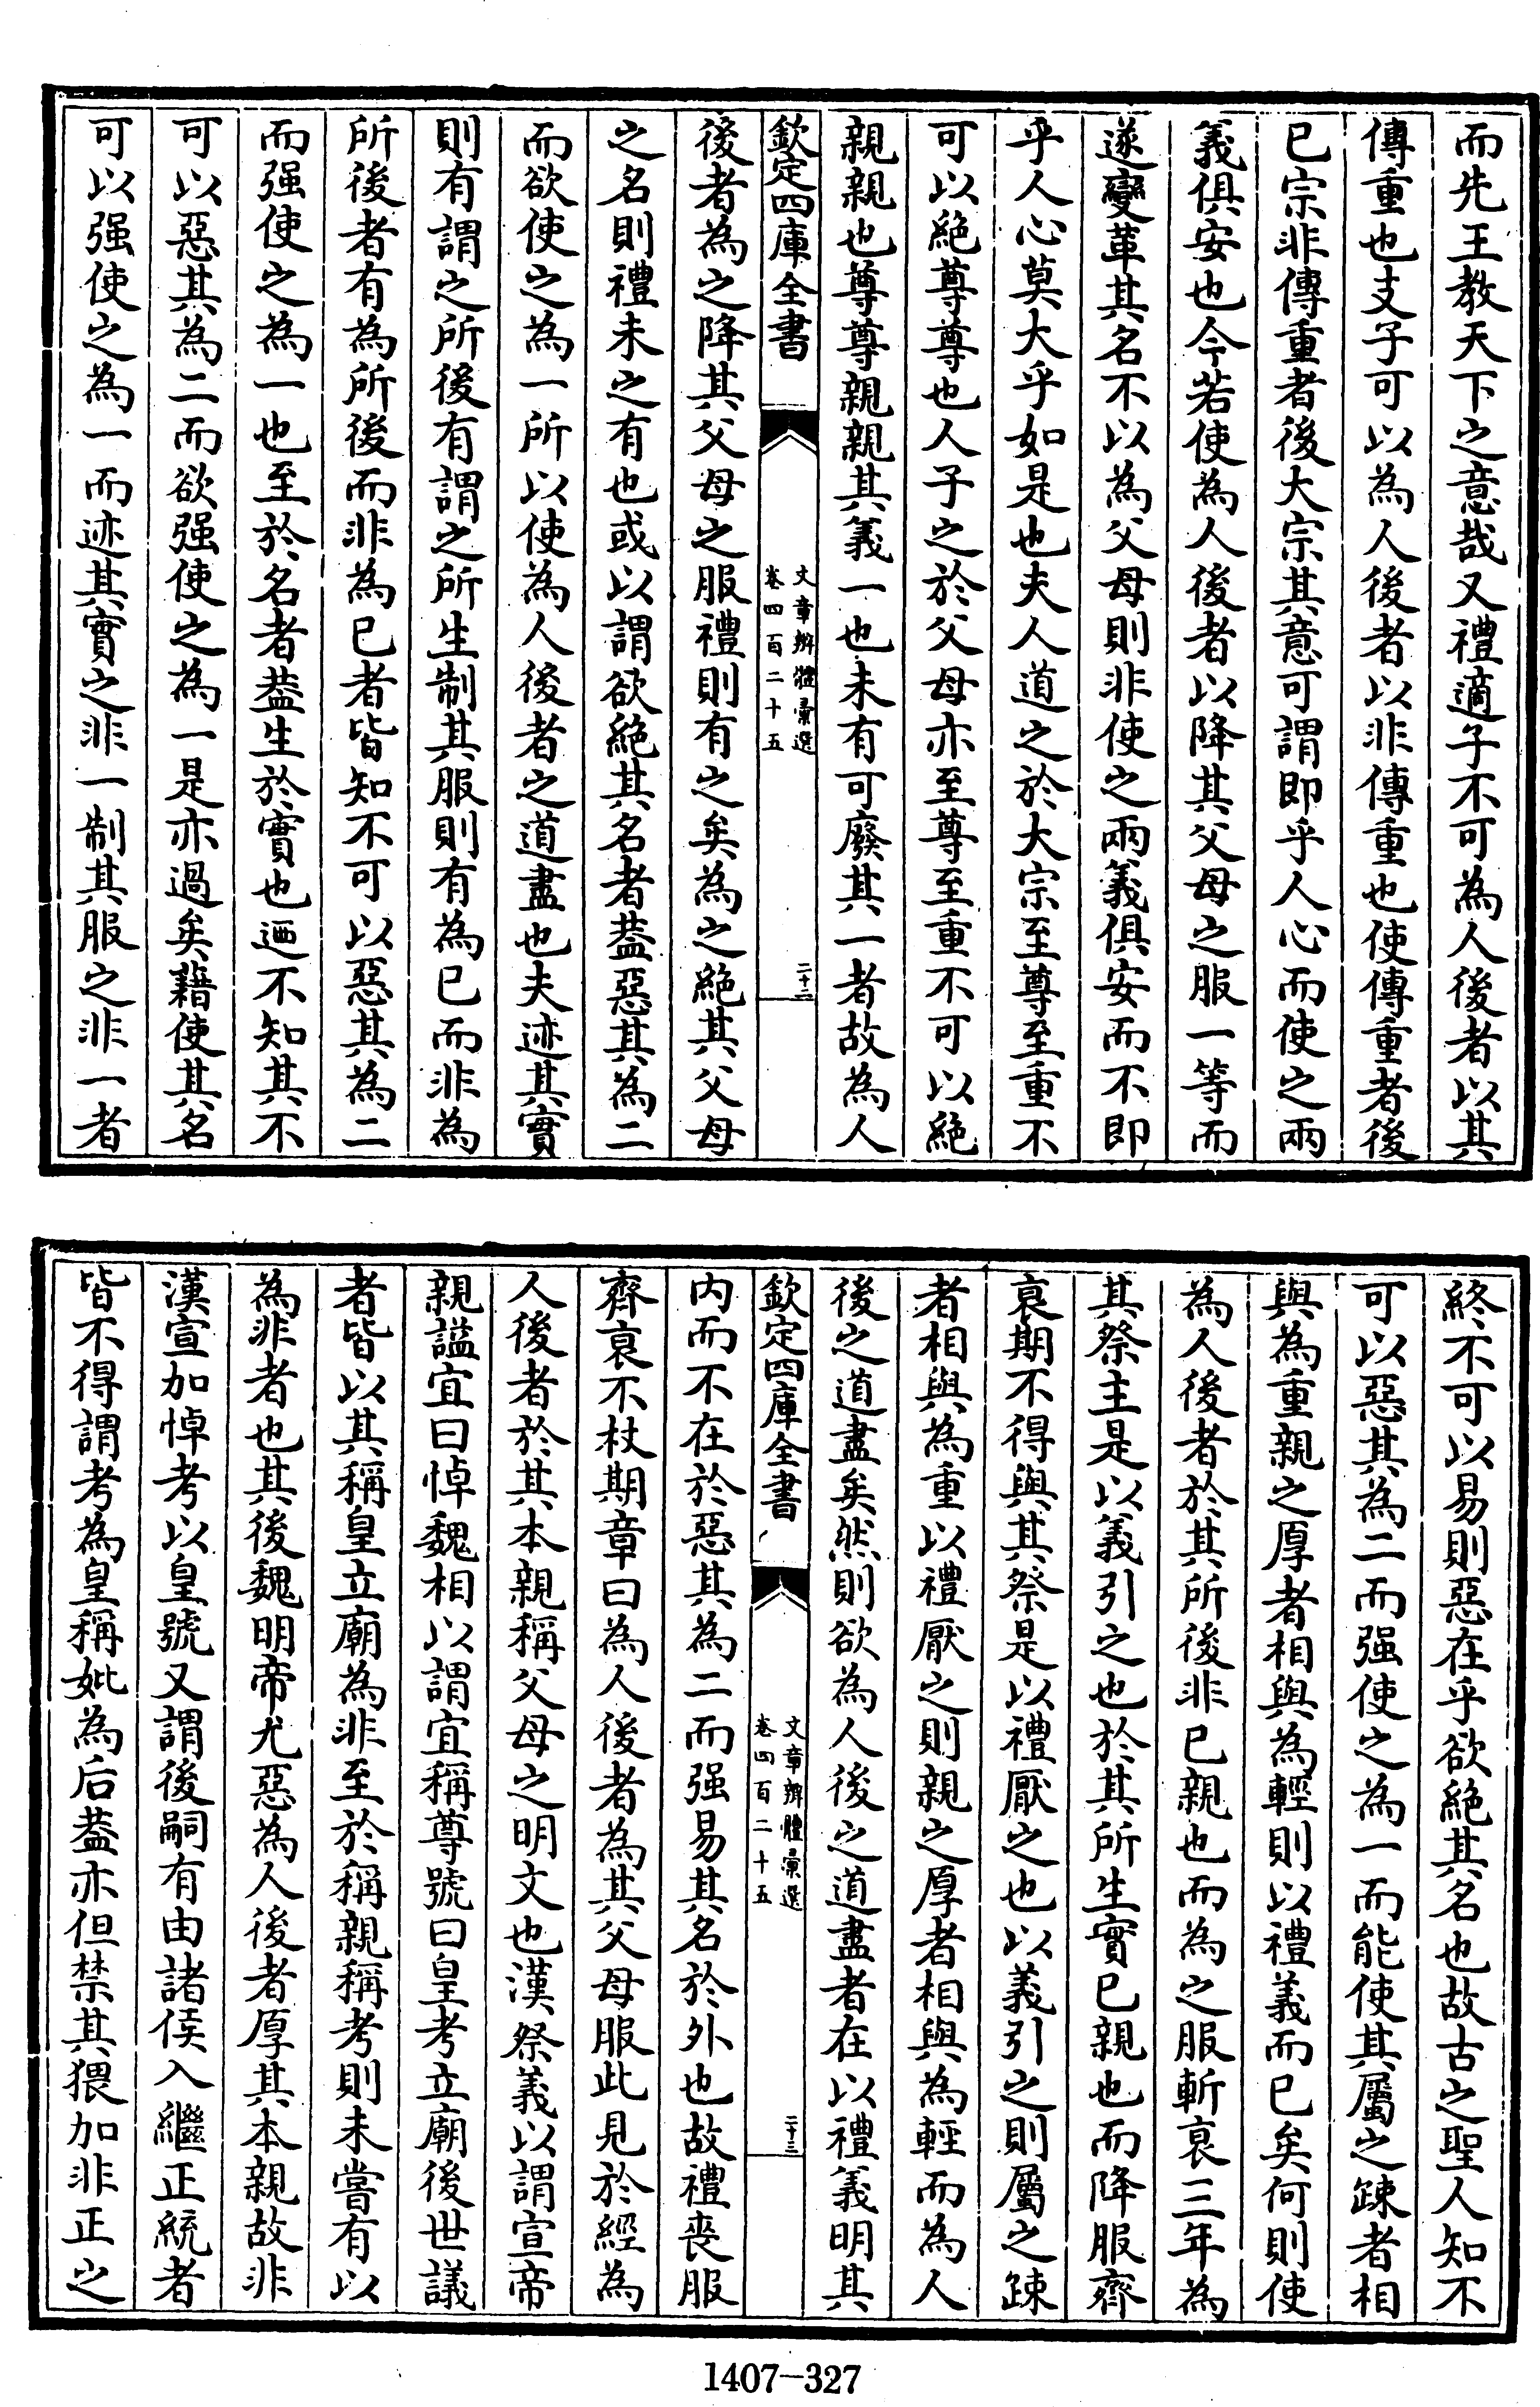 而先王教天下之意哉又禮適子不可為人後者以其
傳重也支子可以為人後者以非傳重也使傳重者後
己宗非傳重者後大宗其意可謂即乎人心而使之兩
義俱安也今若使為人後者以降其父母之服一等而
遂變革其名不以為父母則非使之兩義俱安而不即
乎人心莫大乎如是也夫人道之於大宗至尊至重不
可以絶尊尊也人子之於父母亦至尊至重不可以絶
親親也尊尊親親其義一也未有可廢其一者故為人
欽定四庫全書
文章辨體彙選
卷四百二十五
二十二
後者為之降其父母之服禮則有之矣為之絶其父母
之名則禮未之有也或以謂欲絶其名者葢惡其為二
而欲使之為一所以使為人後者之道盡也夫迹其實
則有謂之所後有謂之所生制其服則有為己而非為
所後者有為所後而非為己者皆知不可以惡其為二
而强使之為一也至於名者葢生於實也迺不知其不
可以惡其為二而欲强使之為一是亦過矣藉使其名
可以强使之為一而迹其實之非一制其服之非一者
終不可以易則惡在乎欲絶其名也故古之聖人知不
可以惡其為二而强使之為一而能使其屬之疎者相
與為重親之厚者相與為輕則以禮義而已矣何則使
為人後者於其所後非己親也而為之服斬衰三年為
其祭主是以義引之也於其所生實己親也而降服齊
衰期不得與其祭是以禮厭之也以義引之則屬之疎
者相與為重以禮厭之則親之厚者相與為輕而為人
後之道盡矣然則欲為人後之道盡者在以禮義明其
欽定四庫全書
文章辨體彙選
卷四百二十五
二十三
内而不在於惡其為二而强易其名於外也故禮喪服
齊衰不杖期章曰為人後者為其父母服此見於經為
人後者於其本親稱父母之明文也漢祭義以謂宣帝
親謚宜曰悼魏相以謂宜稱尊號曰皇考立廟後世議
者皆以其稱皇立廟為非至於稱親稱考則未嘗有以
為非者也其後魏明帝尤惡為人後者厚其本親故非
漢宣加悼考以皇號又謂後嗣有由諸侯入繼正統者
皆不得謂考為皇稱妣為后葢亦但禁其猥加非正之
1407-327